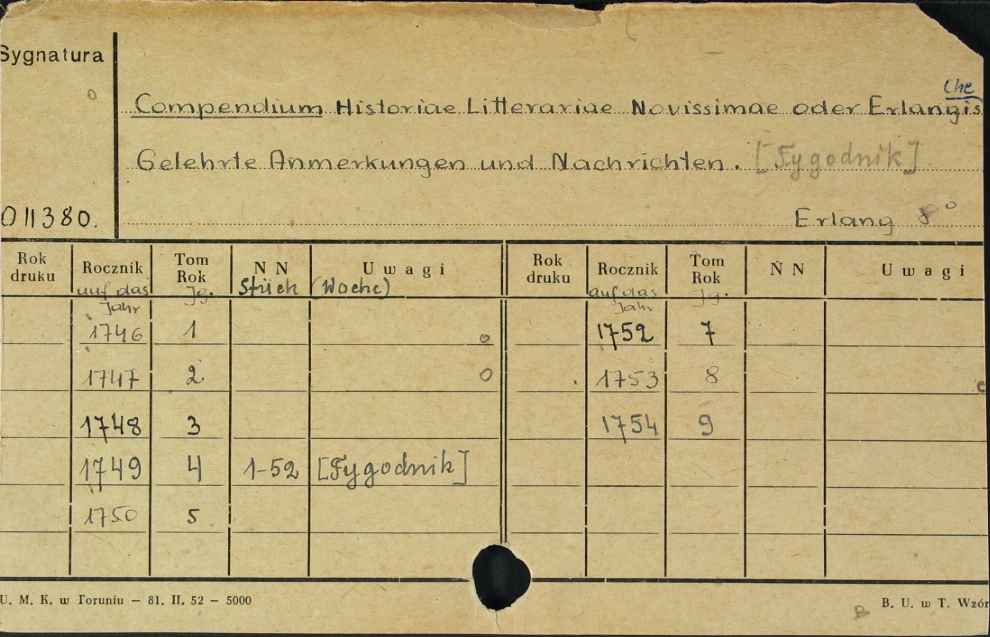 Sygnatura
che
Compendium Historiae Litterariae Novissimae oder Erlangis
Gelehrte Anmerkungen und Nachrichten. [Tygodnik]
011380. Erlang 8°
Rok druku Rocznik Tom Rok N N Uwagi Rok druku Rocznik Tom Rok N N Uwagi
auf das Jahr Jg. Stück (Woche) auf das Jahr Jg.
1746 1 1752 7
1747 2 1753 8
1748 3 1754 9
1749 4 1-52 [Tygodnik]
1750 5
U. M. K. w Toruniu — 81. II. 52 — 5000 B. U. w T. Wzór